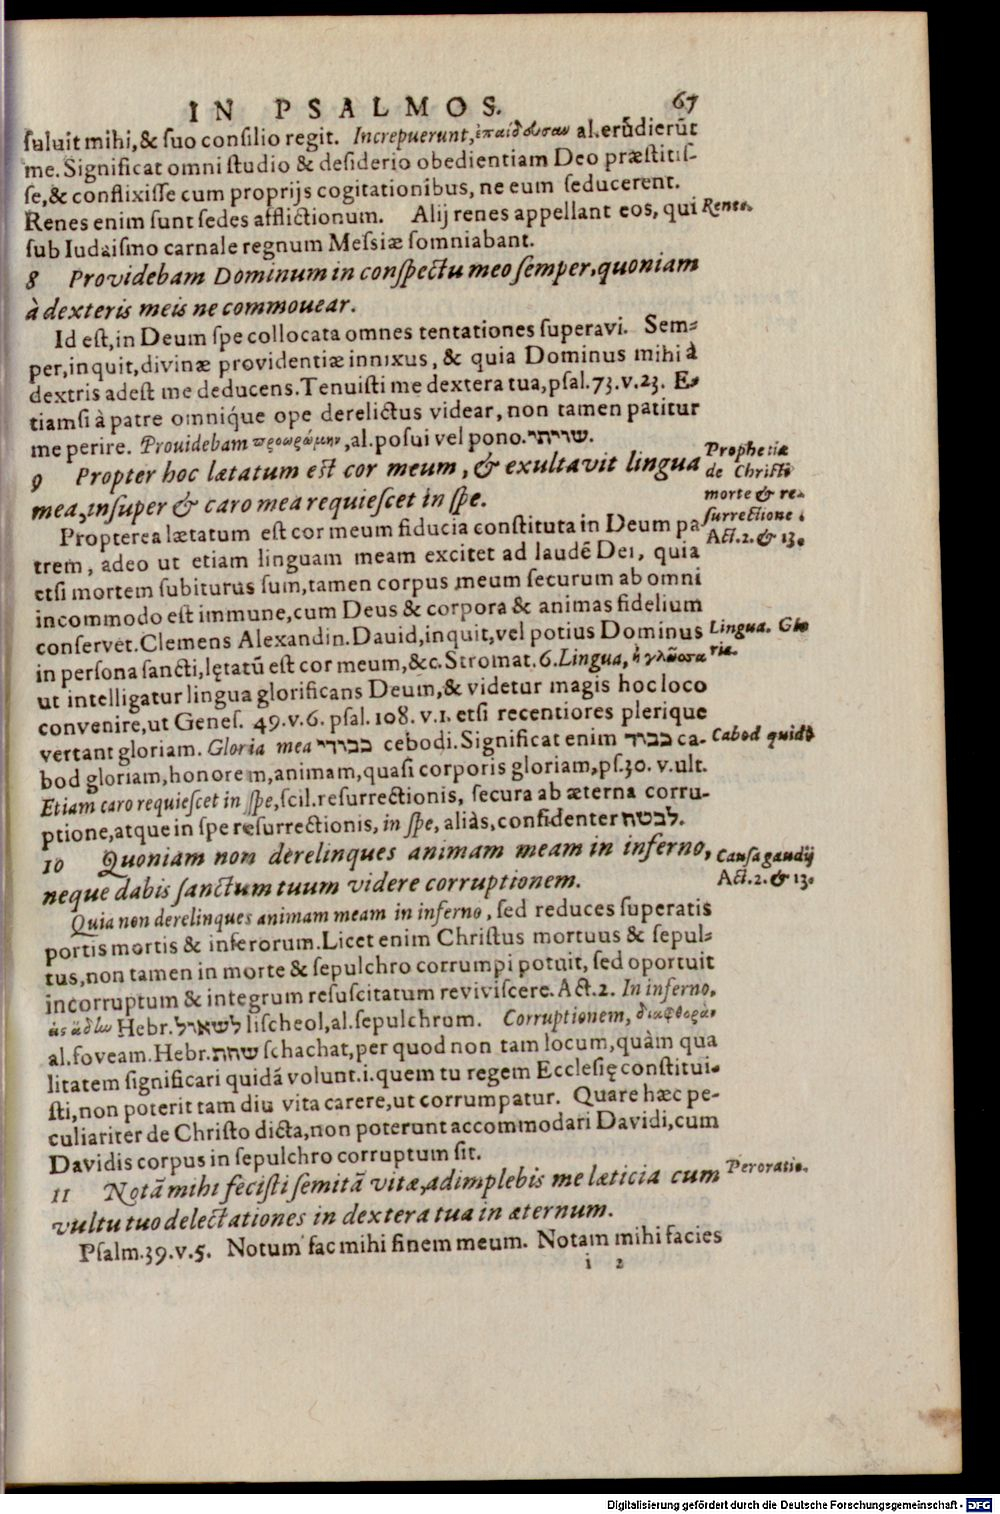 IN PSALMOS. 67
suluit mihi,& suo consilio regit. Increpuerunt,ἐπαίδευσαν al.erūdierūt
me. Significat omni studio & desiderio obedientiam Deo præstitis-
se,& conflixisse cum proprijs cogitationibus, ne eum seducerent.
Renes enim sunt sedes afflictionum. Alij renes appellant eos, qui Renes.
sub Iudaismo carnale regnum Messiæ somniabant.
8 Providebam Dominum in conspectu meo semper, quoniam
à dexteris meis ne commouear.
Id est, in Deum spe collocata omnes tentationes superavi. Sem-
per, inquit, divinæ providentiæ innixus, & quia Dominus mihi à
dextris adest me deducens. Tenuisti me dextera tua, psal.73.v.23. E-
tiamsi à patre omniq́ue ope derelictus videar, non tamen patitur
me perire. Prouidebam προωρώμην, al. posui vel pono. שויתי.
9 Propter hoc lætatum est cor meum, & exultavit lingua
mea, insuper & caro mea requiescet in spe.
Prophetia
de Christi
morte & re-
surrectione.
Act.2. & 13.
Propterea lætatum est cor meum fiducia constituta in Deum pa
trem, adeo ut etiam linguam meam excitet ad laudē Dei, quia
etsi mortem subiturus sum, tamen corpus meum securum ab omni
incommodo est immune, cum Deus & corpora & animas fidelium
conservet. Clemens Alexandin. Dauid, inquit, vel potius Dominus Lingua. Glo
in persona sancti, lętatū est cor meum, &c. Stromat. 6. Lingua, ἡ γλῶσσα ria.
ut intelligatur lingua glorificans Deum, & videtur magis hoc loco
convenire, ut Genes. 49.v.6. psal.108.v.1. etsi recentiores plerique
vertant gloriam. Gloria mea כבודי cebodi. Significat enim כבוד ca- Cabod quid?
bod gloriam, honorem, animam, quasi corporis gloriam, ps.30. v.ult.
Etiam caro requiescet in spe, scil. resurrectionis, secura ab æterna corru-
ptione, atque in spe resurrectionis, in spe, aliàs, confidenter לבטח.
10 Quoniam non derelinques animam meam in inferno, Causa gaudij
neque dabis sanctum tuum videre corruptionem. Act.2. & 13.
Quia non derelinques animam meam in inferno, sed reduces superatis
portis mortis & inferorum. Licet enim Christus mortuus & sepul-
tus, non tamen in morte & sepulchro corrumpi potuit, sed oportuit
incorruptum & integrum resuscitatum reviviscere. Act.2. In inferno,
εἰς ἅδην Hebr. לשאול lischeol, al. sepulchrum. Corruptionem, διαφθορὰν
al. foveam. Hebr. שחת schachat, per quod non tam locum, quàm qua
litatem significari quidā volunt. i. quem tu regem Ecclesię constitui-
sti, non poterit tam diu vita carere, ut corrumpatur. Quare hæc pe-
culiariter de Christo dicta, non poterunt accommodari Davidi, cum
Davidis corpus in sepulchro corruptum sit.
11 Notā mihi fecisti semitā vitæ, adimplebis me læticia cum Peroratio.
vultu tuo delectationes in dextera tua in æternum.
Psalm.39.v.5. Notum fac mihi finem meum. Notam mihi facies
i 2
Digitalisierung gefördert durch die Deutsche Forschungsgemeinschaft - DFG